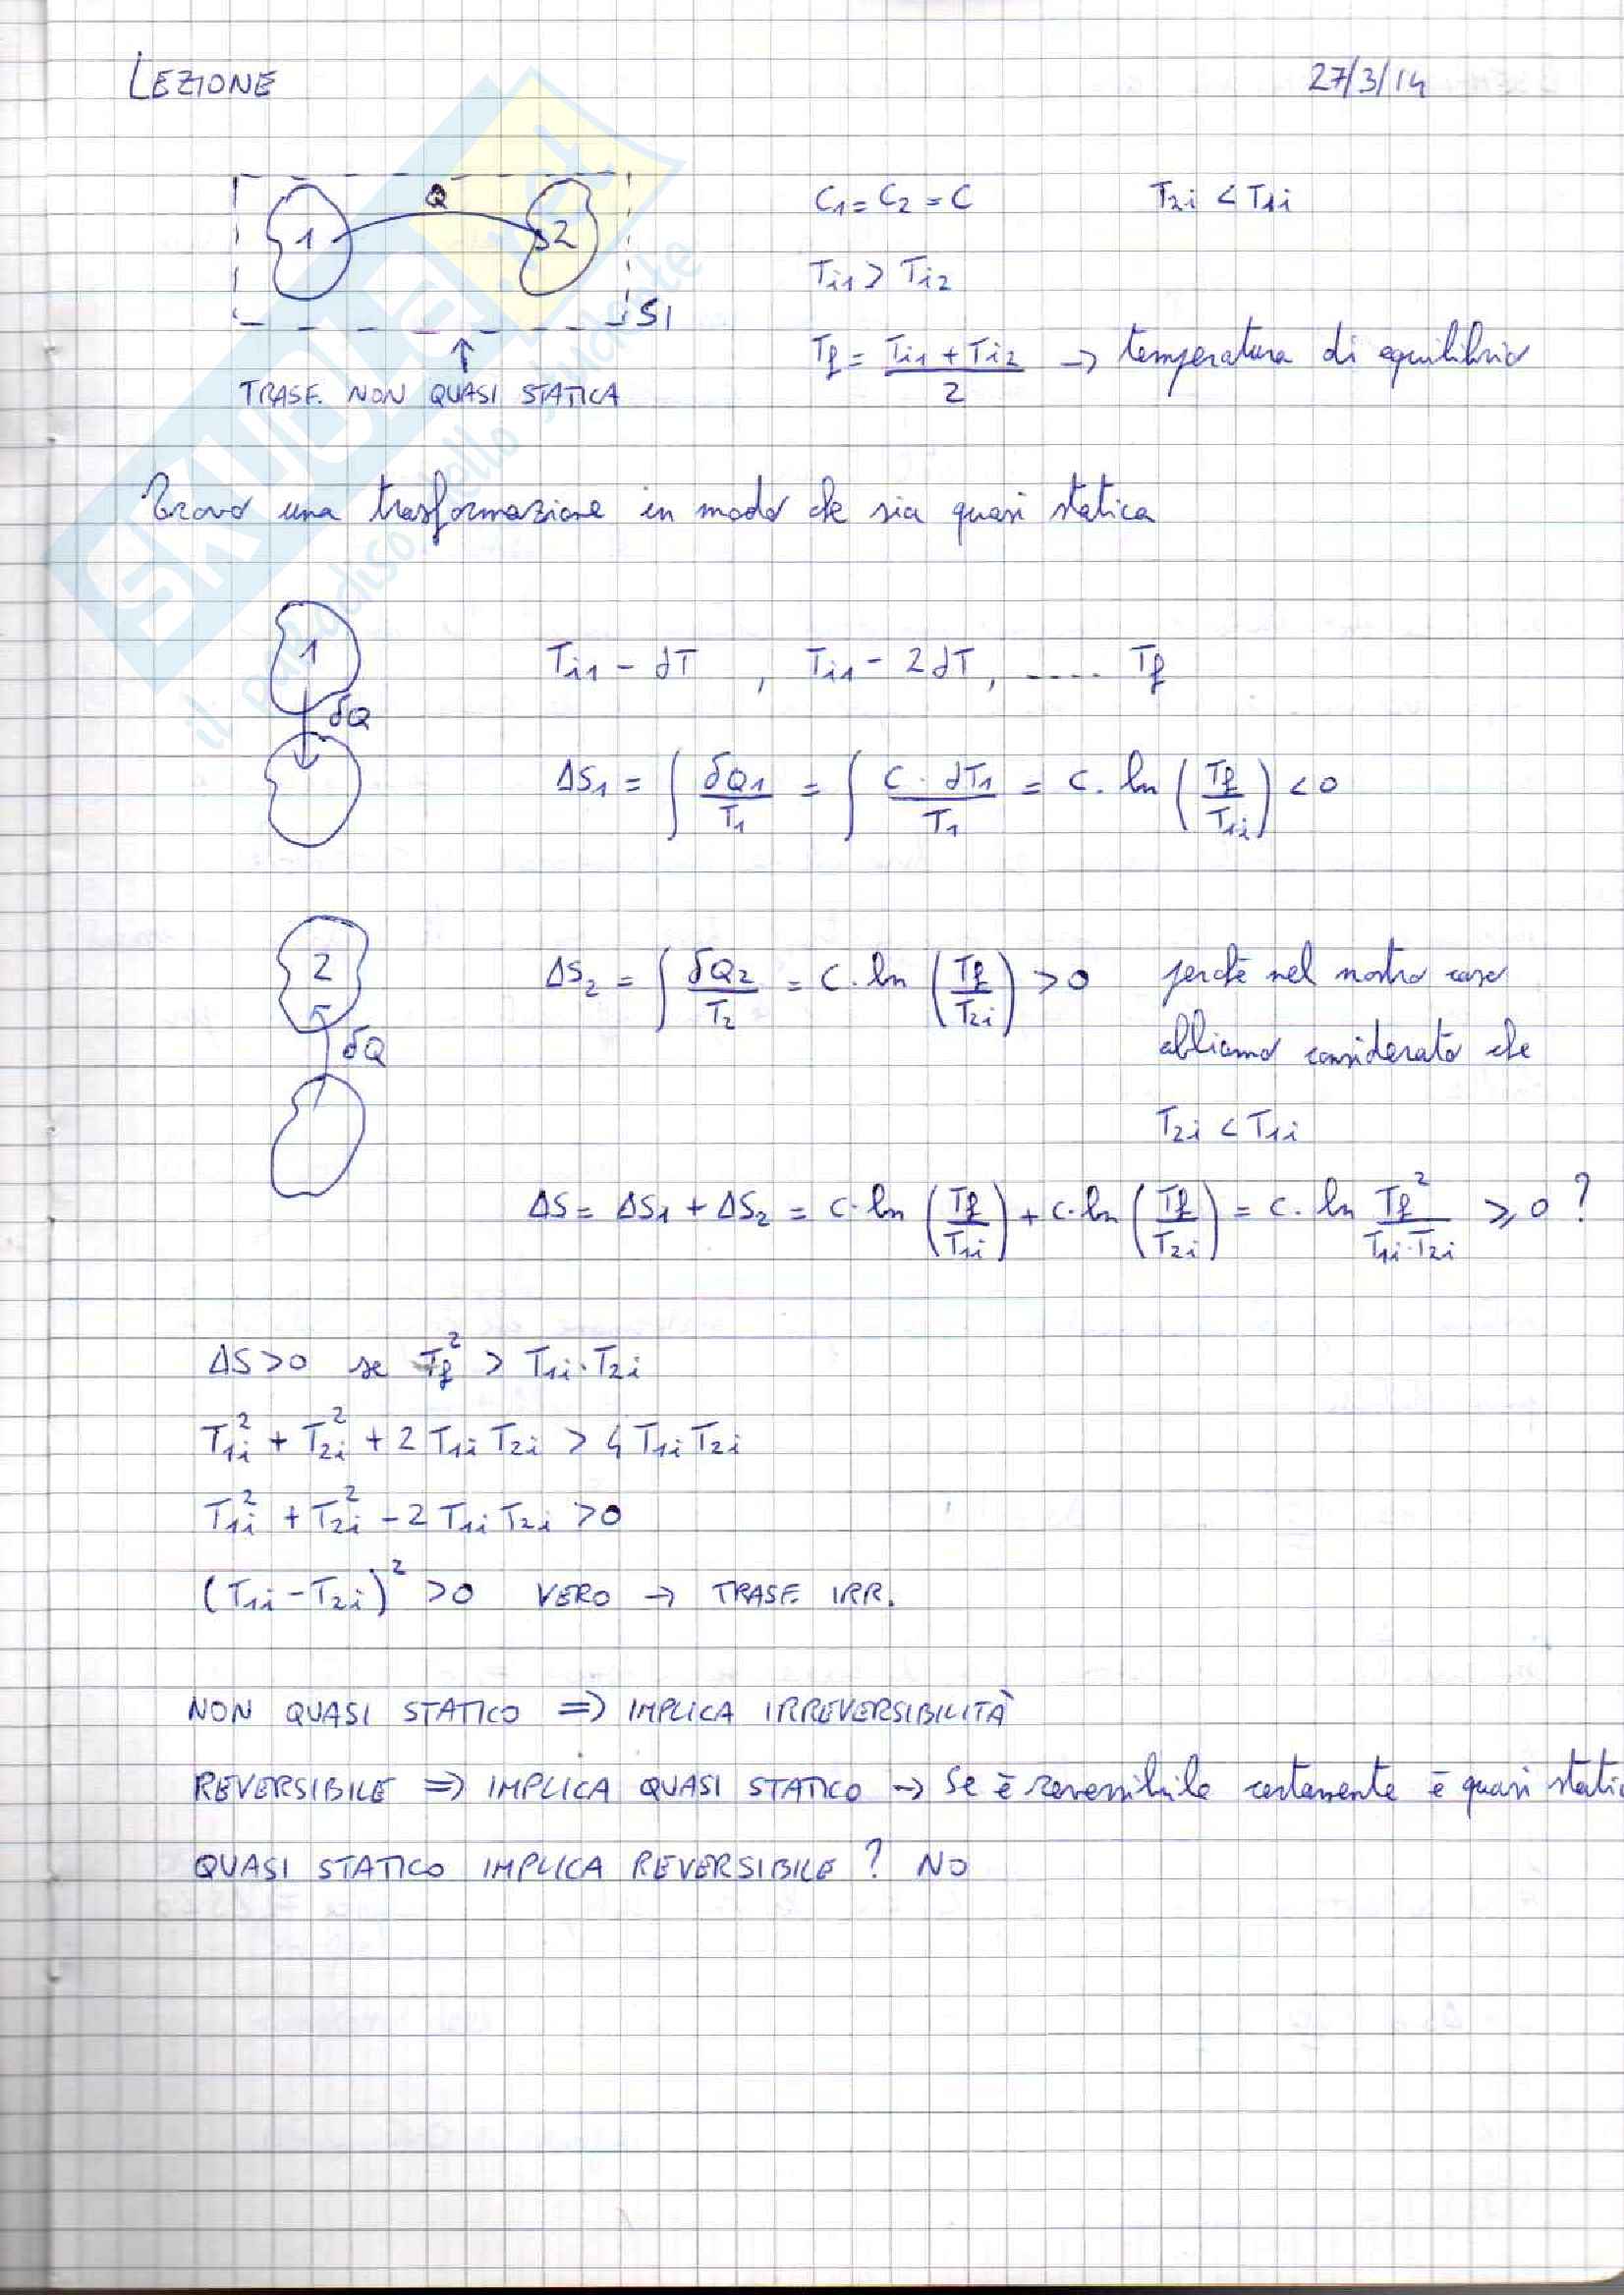 LEZIONE 27/3/14
1 Q 2 C₁ = C₂ = C T₂ᵢ < T₁ᵢ
Tᵢ₁ > Tᵢ₂
SI
Tf = (Tᵢ₁ + Tᵢ₂)/2 → temperatura di equilibrio
TRASF. NON QUASI STATICA
Trovo una trasformazione in modo che sia quasi statica
1 Tᵢ₁ - dT , Tᵢ₁ - 2dT, ..... Tf
δQ
ΔS₁ = ∫ δQ₁/T₁ = ∫ C · dT₁/T₁ = C. ln (Tf/T₁ᵢ) < 0
2 ΔS₂ = ∫ δQ₂/T₂ = C. ln (Tf/T₂ᵢ) > 0 perchè nel nostro caso
δQ abbiamo considerato che
T₂ᵢ < T₁ᵢ
ΔS = ΔS₁ + ΔS₂ = C. ln (Tf/T₁ᵢ) + C. ln (Tf/T₂ᵢ) = C. ln Tf²/(T₁ᵢ·T₂ᵢ) ⩾ 0 ?
ΔS > 0 se Tf² > T₁ᵢ·T₂ᵢ
T₁ᵢ² + T₂ᵢ² + 2 T₁ᵢ T₂ᵢ > 4 T₁ᵢ T₂ᵢ
T₁ᵢ² + T₂ᵢ² - 2 T₁ᵢ T₂ᵢ > 0
(T₁ᵢ - T₂ᵢ)² > 0 VERO → TRASF. IRR.
NON QUASI STATICO ⇒ IMPLICA IRREVERSIBILITÀ
REVERSIBILE ⇒ IMPLICA QUASI STATICO → Se è reversibile certamente è quasi static
QUASI STATICO IMPLICA REVERSIBILE ? NO
SKUOLA.net
il paradiso dello studente